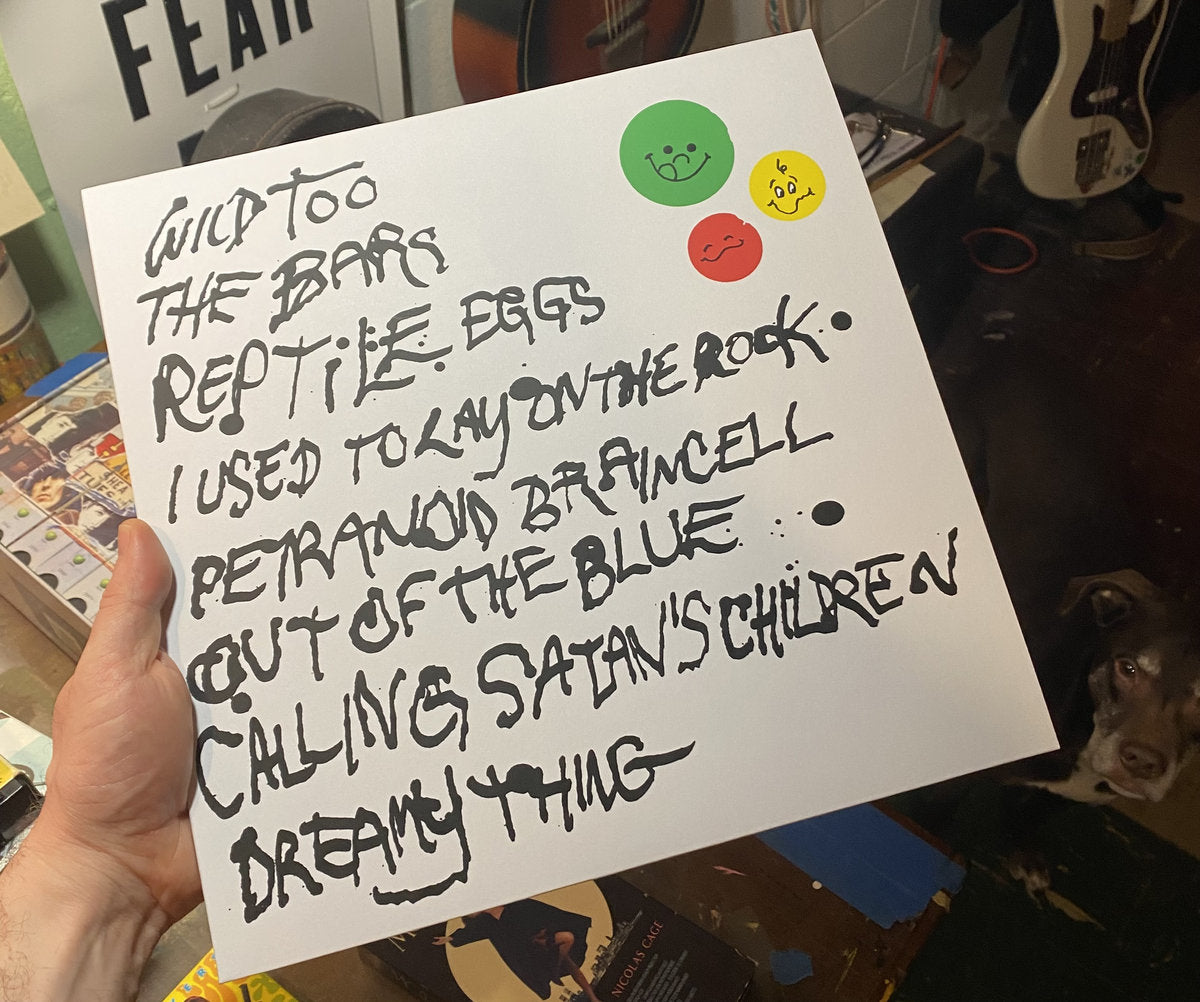 FEAR
WILD TOO
THE BARS
REPTILE EGGS
I USED TO LAY ON THE ROCK
PETRANOID BRAINCELL
OUT OF THE BLUE
CALLING SATAN'S CHILDREN
DREAMY THING
NICOLAS CAGE